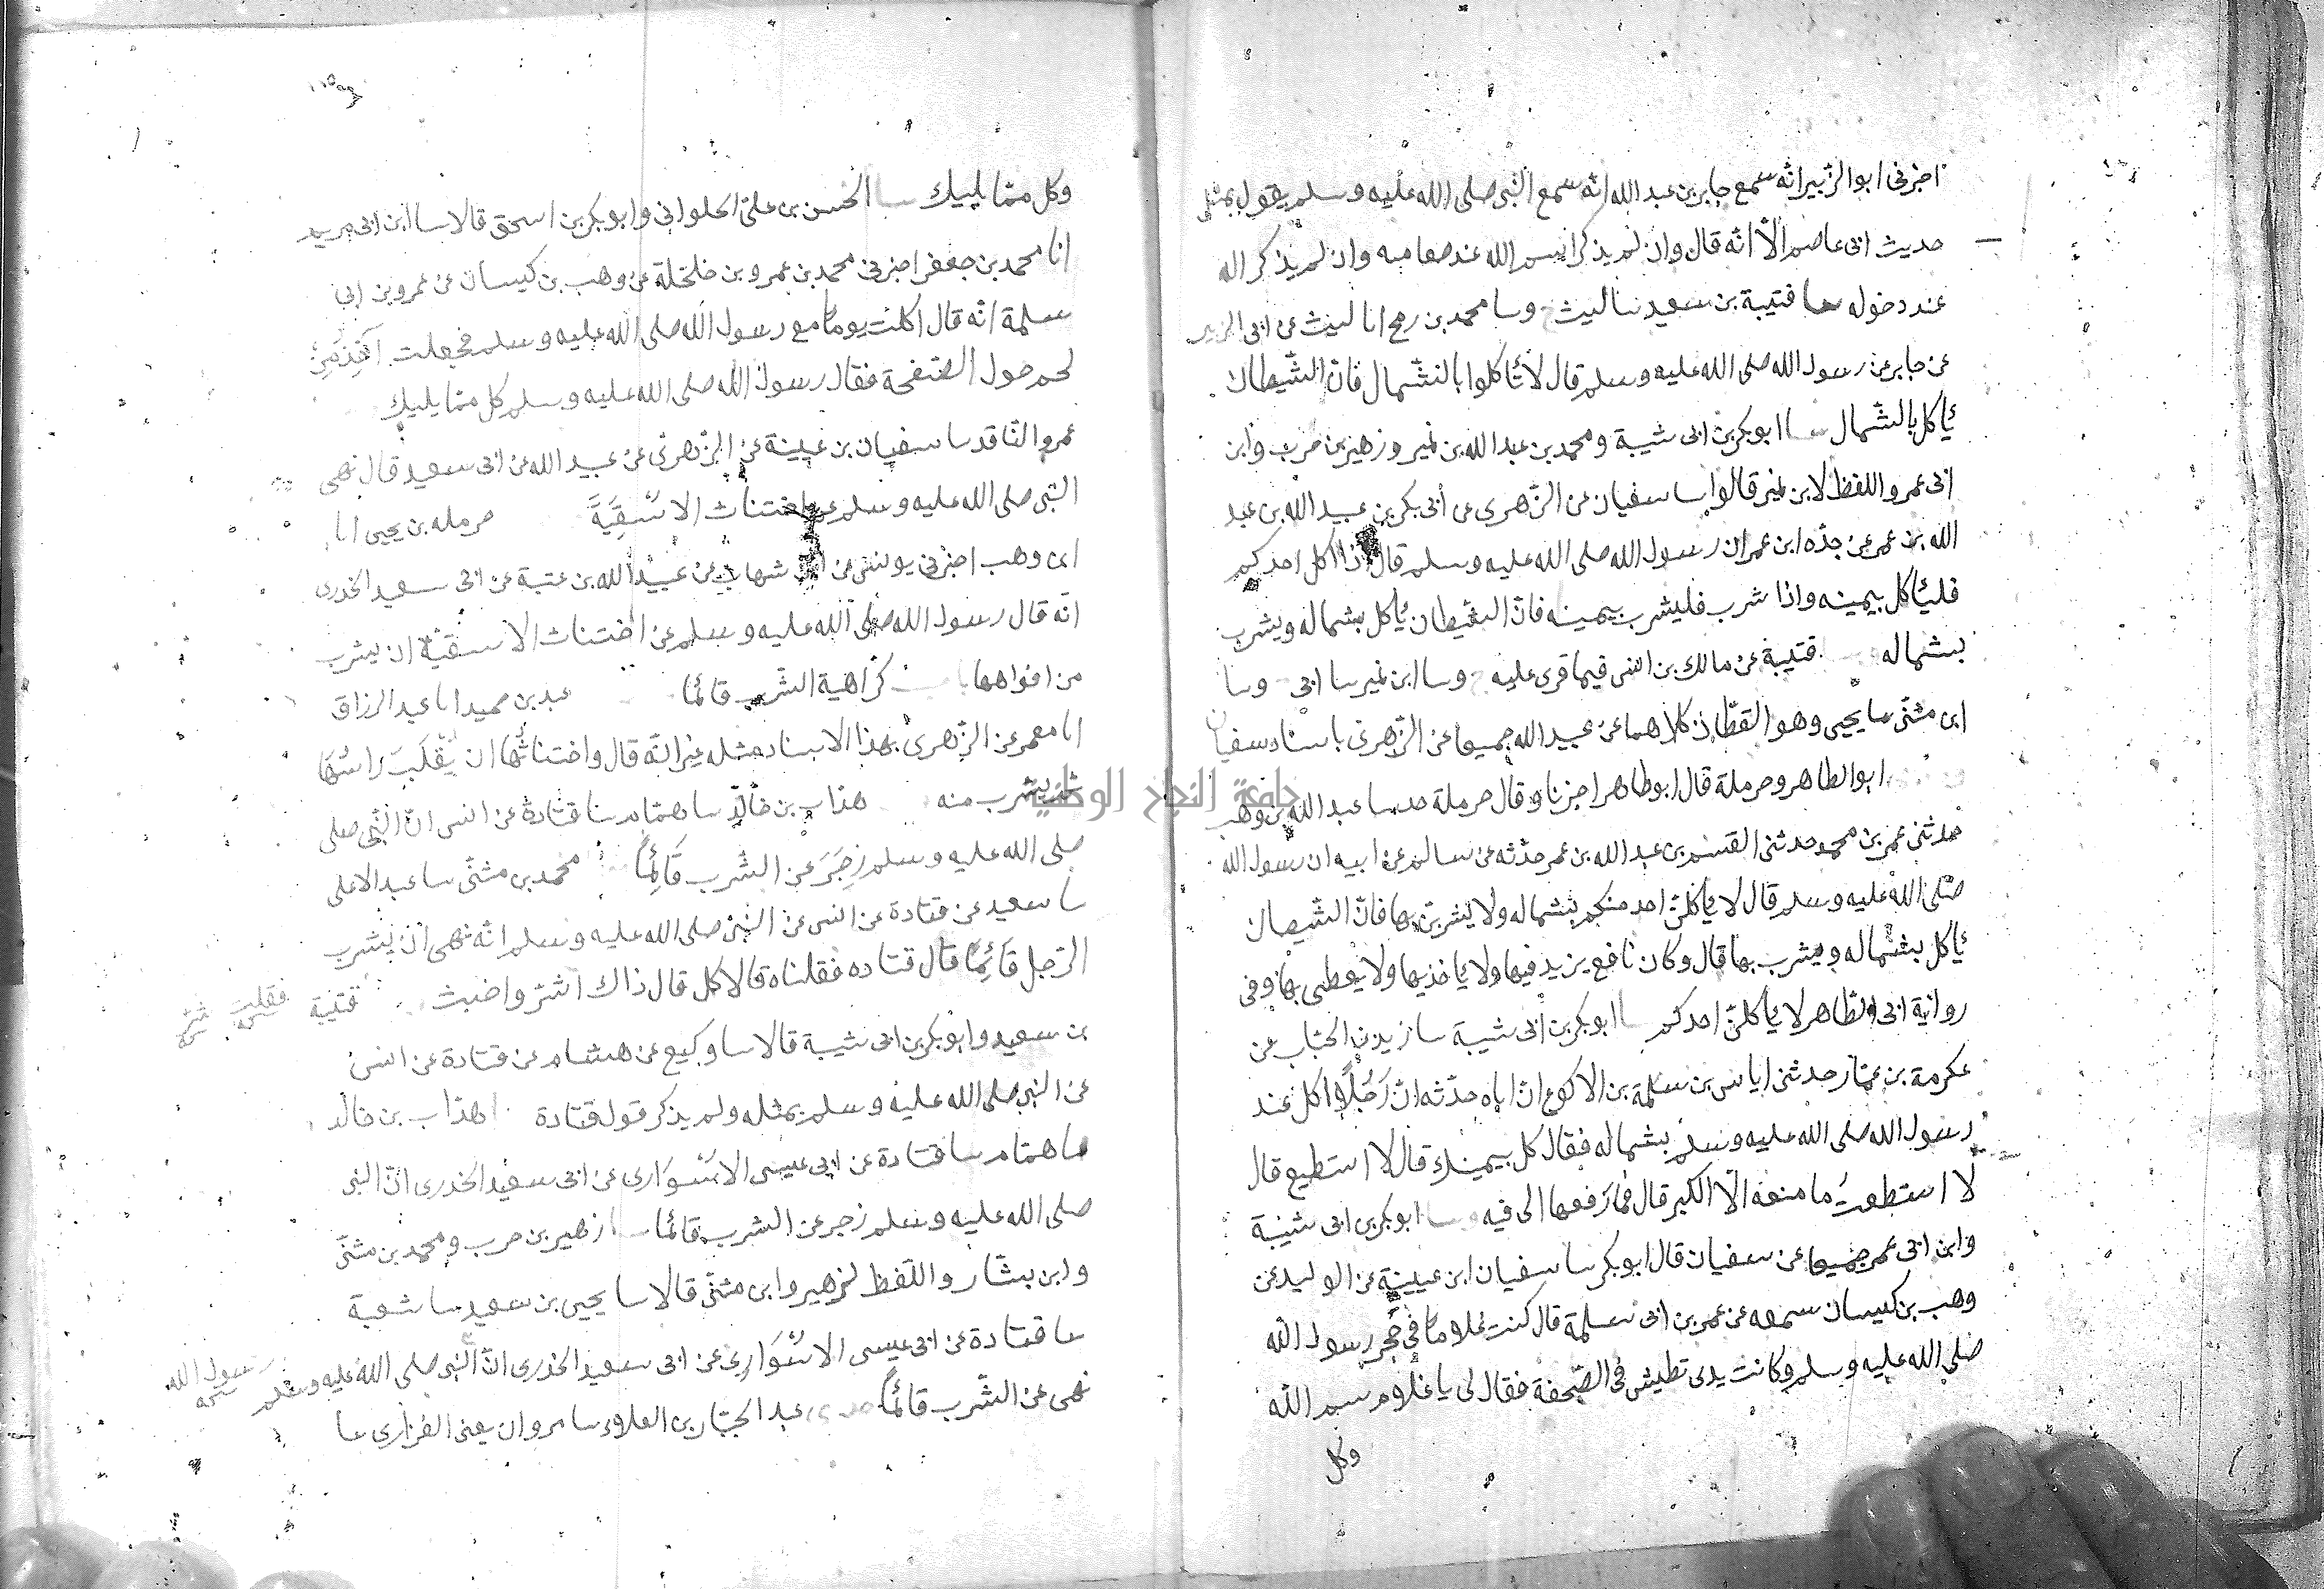 اخبرنى ابو الزّبير انّه سمع جابر بن عبد الله انّه سمع النّبى صلى الله عليه وسلم يقول بمثل
حديث ابى عاصم الّا انّه قال وان لم يذكر اسم الله عند طعامه وان لم يذكر الله
عند دخوله سا قتيبة بن سعيد سا ليث ح وسا محمد بن رمح انا ليث عن ابى الزبير
عن جابر عن رسول الله صلى الله عليه وسلم قال لا تأكلوا بالشّمال فانّ الشّيطان
يأكل بالشّمال سا ابو بكر بن ابى شيبة ومحمد بن عبد الله بن نمير وزهير بن حرب وابن
ابى عمر واللفظ لابن نمير قالوا سا سفيان عن الزّهرى عن أبى بكر بن عبيد الله بن عبد
الله بن عمر عن جدّه ابن عمر ان رسول الله صلى الله عليه وسلم قال اذا اكل احدكم
فليأكل بيمينه واذا شرب فليشرب بيمينه فانّ الشّيطان يأكل بشماله ويشرب
بشماله قتيبة عن مالك بن انس فيما قرى عليه ح وسا ابن نمير سا ابى ح وسا
ابن مثنّى سا يحيى وهو القطّان كلاهما عن عبيد الله جميعا عن الزّهرى باسناد سفيان
ابو الطاهر وحرملة قال ابو طاهر اخبرنا وقال حرملة حدسا عبد الله بن وهب
حدثنى عمر بن محمد حدثنى القسم بن عبد الله بن عمر حدّثه عن سالم عن ابيه ان رسول الله
صلى الله عليه وسلم قال لا يأكلنّ احد منكم بشماله ولا يشربنّ بها فانّ الشّيطان
يأكل بشماله ويشرب بها قال وكان نافع يزيد فيها ولا يأخذ بها ولا يعطى بها وفى
رواية ابى الطّاهر لا يأكلنّ احدكم سا ابو بكر بن ابى شيبة سا زيد بن الحباب عن
عكرمة بن عمّار حدثنى اياس بن سلمة بن الاكوع انّ اباه حدّثه انّ رَجُلًا اكل عند
رسول الله صلى الله عليه وسلم بشماله فقال كل بيمينك قال لا استطيع قال
لا استطعتَ ما منعه الّا الكبر قال فما رَفعها الى فيه وسا ابو بكر بن ابى شيبة
وابن ابى عمر جميعا عن سفيان قال ابو بكر سا سفيان ابن عيينة عن الوليد عن
وهب بن كيسان سمعه عن عمر بن ابى سلمة قال كنت غلاما فى حجر رسول الله
صلى الله عليه وسلم وكانت يدى تطيش فى الصّحفة فقال لى يا غلام سم الله
وكل
وكل ممّا يليك سا الحسن بن علىّ الحلوانى وابو بكر بن اسحق قالا سا ابن ابى مريم
انا محمد بن جعفر اخبرنى محمد بن عمرو بن حلحلة عن وهب بن كيسان عن عمرو بن ابى
سلمة انّه قال اكلت يوما مع رسول الله صلى الله عليه وسلم فجعلت آخذ من
لحم حول الصّفحة فقال رسول الله صلى الله عليه وسلم كل ممّا يليك
عمرو النّاقد سا سفيان بن عيينة عن الزّهرى عن عبيد الله عن ابى سعيد قال نهى
النّبى صلى الله عليه وسلم عن اختناث الاسْقِيَةَ حرمله بن يحيى انا
ابن وهب اخبرنى يونس عن ابن شهاب عن عبيد الله بن عتبة عن ابى سعيد الخدرى
انّه قال رسول الله صلى الله عليه وسلم عن اختناث الاسقية ان يشرب
من افواهها باب كراهية الشّرب قائما عبد بن حميد انا عبد الرزاق
انا معمر عن الزّهرى بهذا الاسناد مثله غير انّه قال واختناثُها ان يُقْلَبَ رأسُهَا
ثم يشرب منه هذاب بن خالد سا همّام سا قتادة عن انس انّ النّبى صلى
صلى الله عليه وسلم زجَرَ عن الشّرب قَائِمًا محمد بن مثنّى سا عبد الاعلى
سا سعيد عن قتادة عن انس عن النّبى صلى الله عليه وسلم انّه نهى ان يشرب
الرّجل قَائِمًا قال قتاده فقلناه قالا كل قال ذاك اشرّ واخبث قتيبة
فقلت
بن سعيد وابو بكر بن ابى شيبة قالا سا وكيع عن هشام عن قتادة عن انس
عن النبى صلى الله عليه وسلم بمثله ولم يذكر قول قتادة هذاب بن خالد
سا همّام سا قتادة عن ابى عيسى الاسْوَارى عن ابى سعيد الخدرى انّ النبى
صلى الله عليه وسلم زجر عن الشرب قائما سا زهير بن حرب ومحمد بن مثنّى
وابن بشّار واللّفظ لزهير وابن مثنّى قالا سا يحيى بن سعيد سا شعبة
سا قتادة عن ابى عيسى الاسْوَارى عن ابى سعيد الخدرى انّ النبى صلى الله عليه وسلم
رسول الله
نهى عن الشّرب قائمًا عبد الجبّار بن العلاء سا مروان يعنى الفزارى سا
جامعة النجاح الوطنية